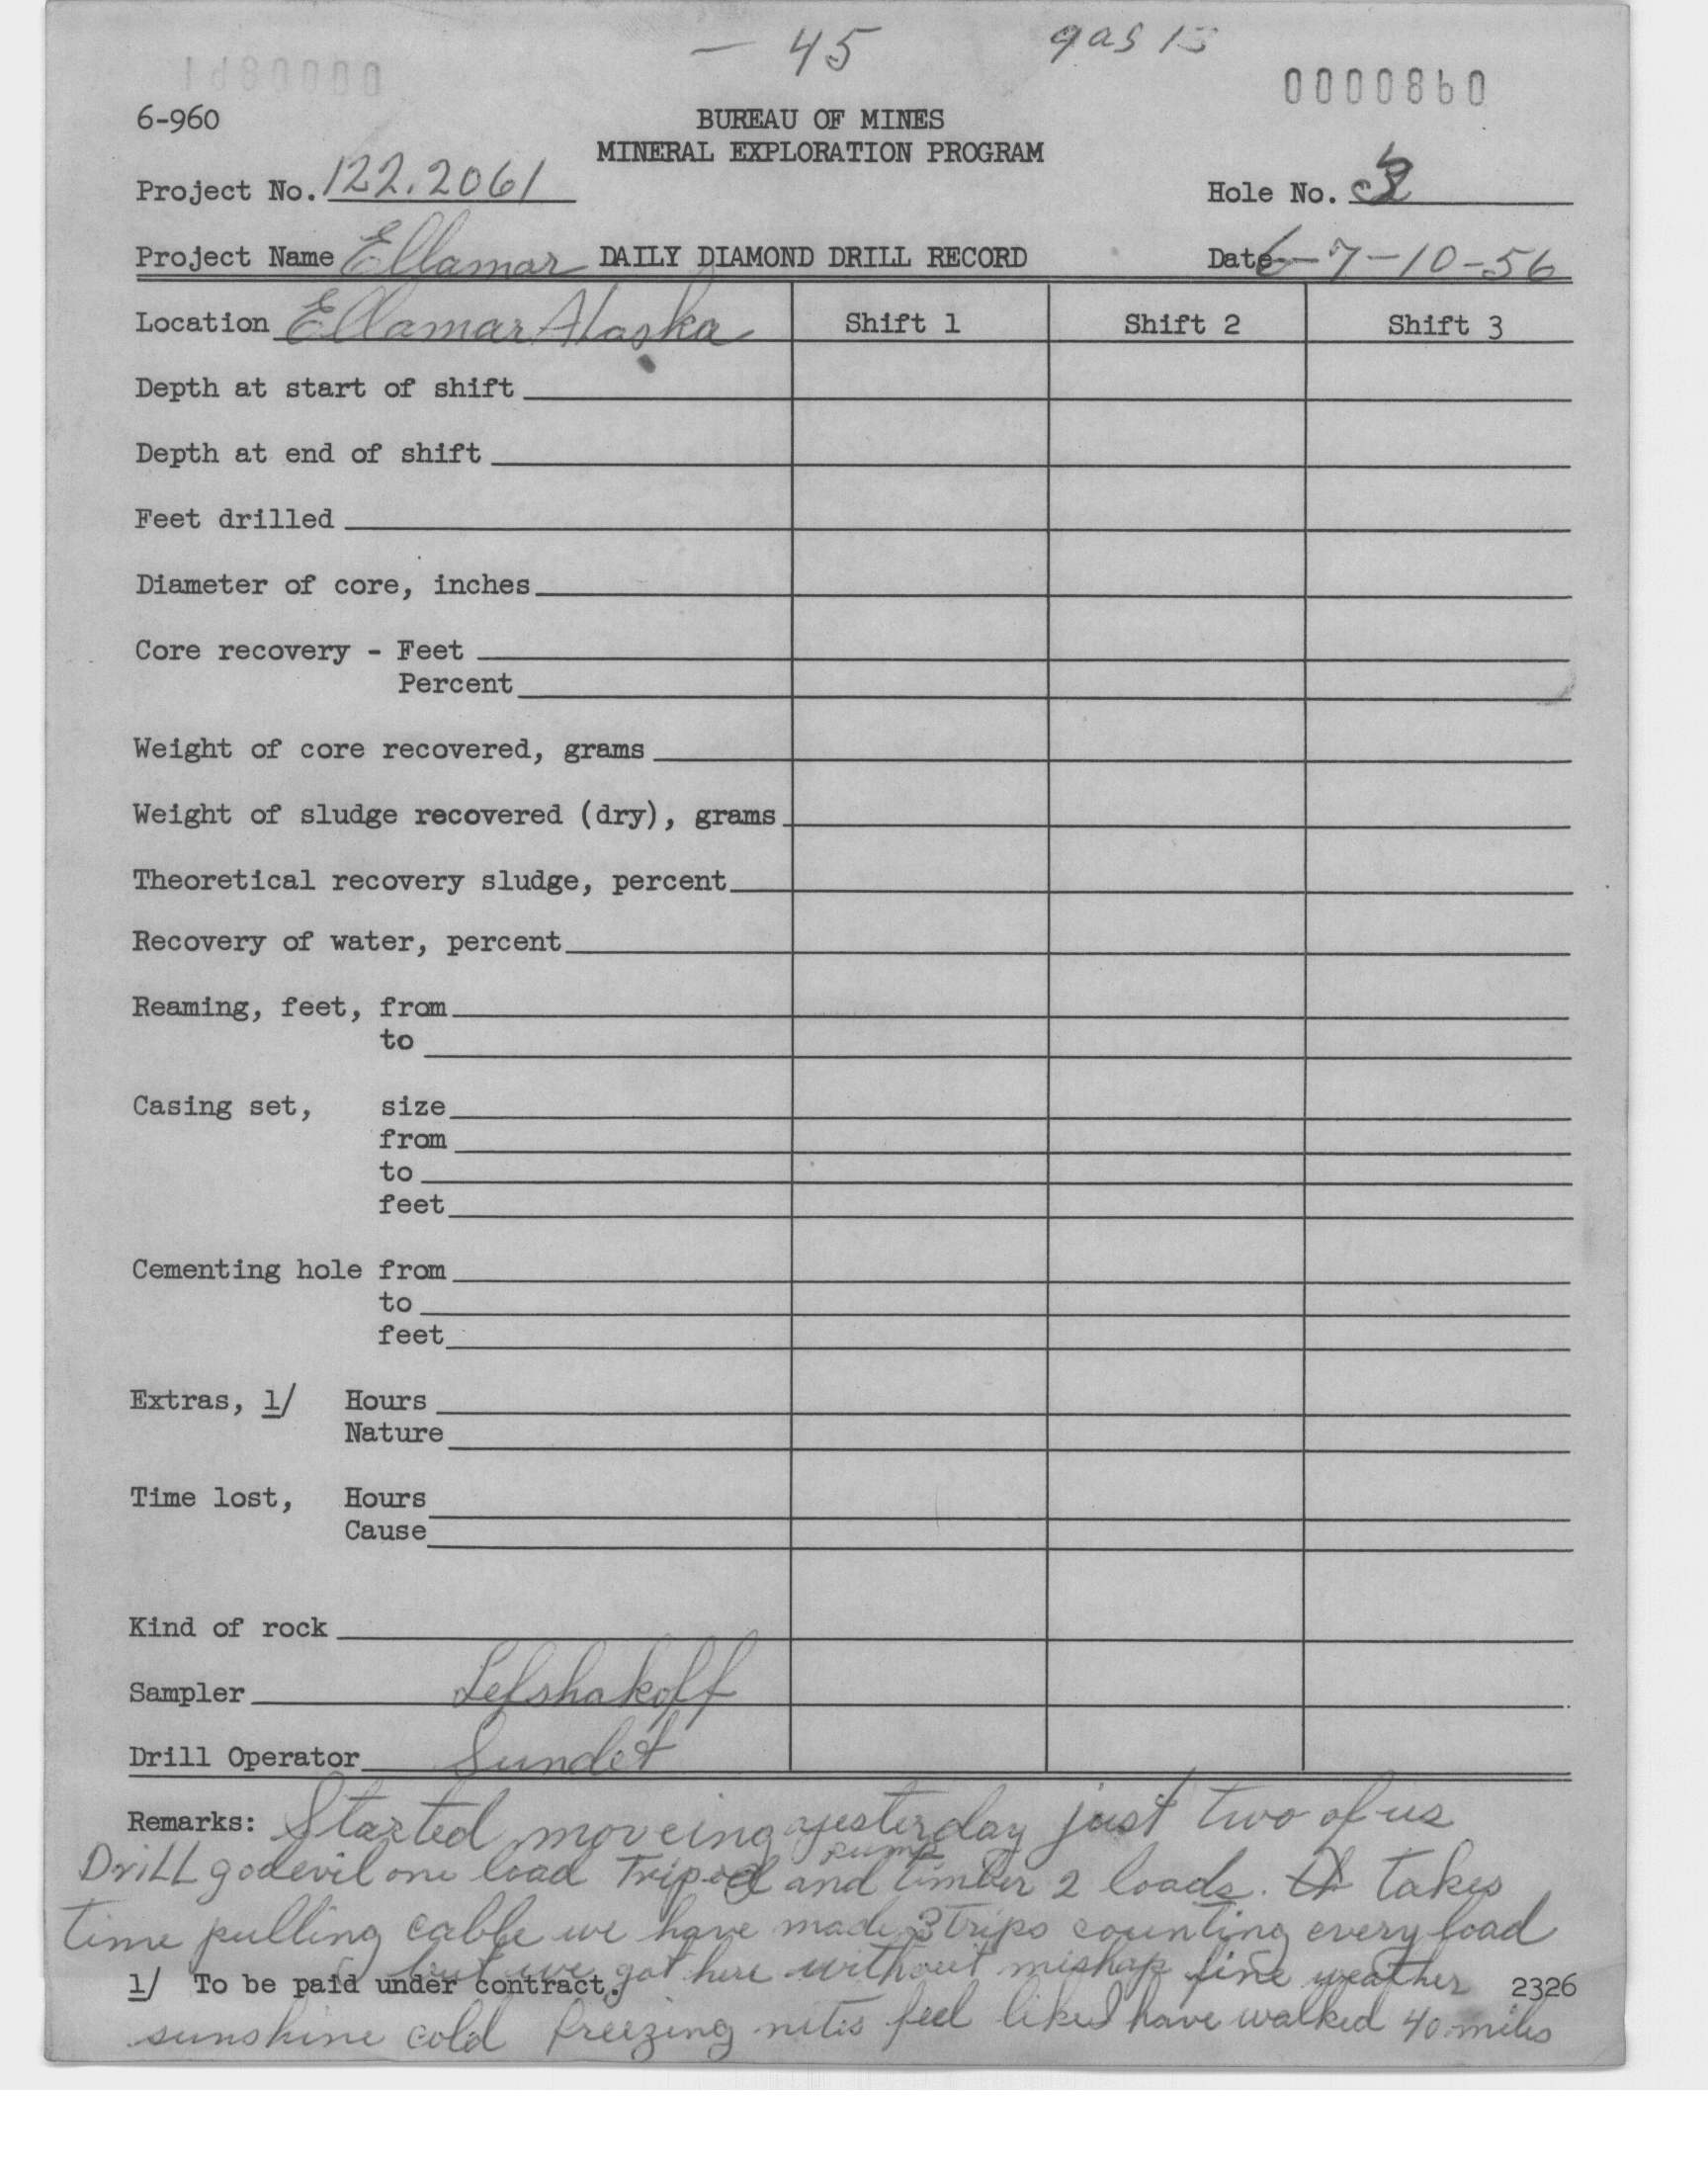 — 45 gas 15
0000860
6-960 BUREAU OF MINES
MINERAL EXPLORATION PROGRAM
Project No. 122.2061 Hole No.
Project Name Ellamar DAILY DIAMOND DRILL RECORD Date 6-7-10-56
Location Ellamar Alaska Shift 1 Shift 2 Shift 3
Depth at start of shift
Depth at end of shift
Feet drilled
Diameter of core, inches
Core recovery - Feet
Percent
Weight of core recovered, grams
Weight of sludge recovered (dry), grams
Theoretical recovery sludge, percent
Recovery of water, percent
Reaming, feet, from
to
Casing set, size
from
to
feet
Cementing hole from
to
feet
Extras, 1/ Hours
Nature
Time lost, Hours
Cause
Kind of rock
Sampler Lefshakoff
Drill Operator Sundet
Remarks: Started moveing yesterday just two of us
pump
Drill godevil one load Tripod and timber 2 loads. It takes
time pulling cable we have made 3 trips counting every load
but we got here without mishap fine weather
1/ To be paid under contract. 2326
sunshine cold freezing nites feel like I have walked 40 miles